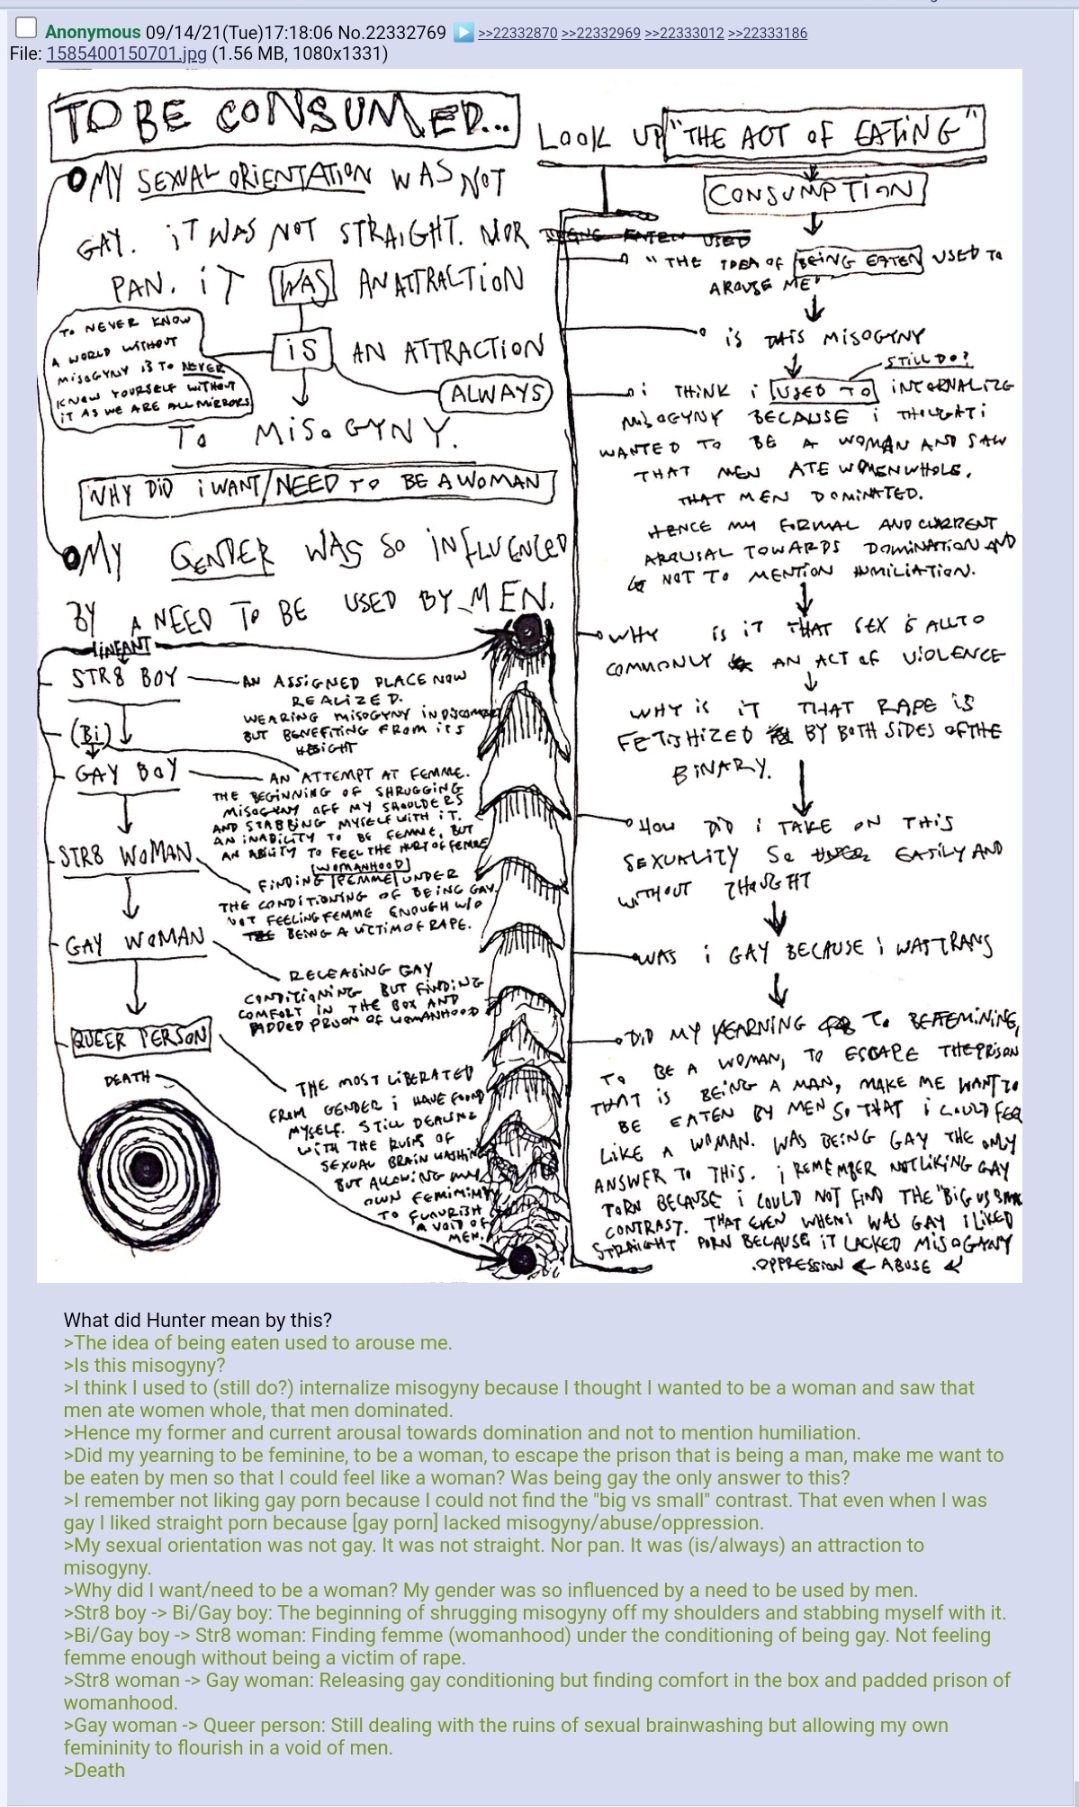 Anonymous 09/14/21(Tue)17:18:06 No.22332769 >>22332870 >>22332969 >>22333012 >>22333186
File: 1585400150701.jpg (1.56 MB, 1080x1331)
TO BE CONSUMED...
MY SEXUAL ORIENTATION WAS NOT
GAY. iT WAS NOT STRAIGHT. NOR
PAN. iT WAS AN ATTRACTION
TO NEVER KNOW
A WORLD WITHOUT
MISOGYNY IS TO NEVER
KNOW YOURSELF WITHOUT
iT AS WE ARE ALL MIRRORS
iS AN ATTRACTION
ALWAYS
TO MiSOGYNY.
WHY DiD i WANT/NEED TO BE A WOMAN
MY GENDER WAS SO iNFLUENCED
BY A NEED TO BE USED BY MEN.
iNFANT
STR8 BOY
AN ASSIGNED PLACE NOW
REALiZED.
WEARING MISOGYNY IN
BUT BENEFITING FROM iTS
(Bi)
GAY BOY
AN ATTEMPT AT FEMME.
THE BEGINNING OF SHRUGGING
MISOGYNY OFF MY SHOULDERS
AND STABBING MYSELF WITH iT.
AN INABILITY TO BE FEMME, BUT
AN ABILITY TO FEEL THE HURT OF FEMME
STR8 WOMAN
[WOMANHOOD]
FINDING [FEMME] UNDER
THE CONDITIONING OF BEING GAY.
NOT FEELING FEMME ENOUGH W/O
BEING A VICTIM OF RAPE.
GAY WOMAN
RELEASING GAY
CONDITIONING BUT FINDING
COMFORT IN THE BOX AND
PADDED PRISON OF WOMANHOOD
QUEER PERSON
THE MOST LIBERATED
FROM GENDER i HAVE FOUND
MYSELF. STILL DEALING
WITH THE RUINS OF
SEXUAL BRAIN WASHING
BUT ALLOWING MY
OWN FEMININITY
TO FLOURISH
A VOID OF
MEN.
DEATH
LOOK UP "THE ACT OF EATING"
CONSUMPTION
"THE IDEA OF BEING EATEN USED TO
AROUSE ME"
iS THIS MISOGYNY
STILL DO?
i THINK i USED TO INTERNALIZE
MISOGYNY BECAUSE i THOUGHT i
WANTED TO BE A WOMAN AND SAW
THAT MEN ATE WOMEN WHOLE,
THAT MEN DOMINATED.
HENCE MY FORMAL AND CURRENT
AROUSAL TOWARDS DOMINATION AND
NOT TO MENTION HUMILIATION.
WHY iS iT THAT SEX iS ALL TO
COMMONLY AN ACT OF VIOLENCE
WHY iS iT THAT RAPE iS
FETISHIZED BY BOTH SIDES OF THE
BINARY.
HOW DiD i TAKE ON THIS
SEXUALITY SO EASILY AND
WITHOUT THOUGHT
WAS i GAY BECAUSE i WAS TRANS
DID MY YEARNING TO BE FEMININE,
TO BE A WOMAN, TO ESCAPE THE PRISON
THAT iS BEiNG A MAN, MAKE ME WANT TO
BE EATEN BY MEN SO THAT i COULD FEEL
LiKE A WOMAN. WAS BEiNG GAY THE ONLY
ANSWER TO THiS. i REMEMBER NOT LIKING GAY
PORN BECAUSE i COULD NOT FIND THE "BIG VS SMALL
CONTRAST. THAT EVEN WHEN i WAS GAY i LIKED
STRAIGHT PORN BECAUSE IT LACKED MISOGYNY
OPPRESSION ABUSE
What did Hunter mean by this?
>The idea of being eaten used to arouse me.
>Is this misogyny?
>I think I used to (still do?) internalize misogyny because I thought I wanted to be a woman and saw that
men ate women whole, that men dominated.
>Hence my former and current arousal towards domination and not to mention humiliation.
>Did my yearning to be feminine, to be a woman, to escape the prison that is being a man, make me want to
be eaten by men so that I could feel like a woman? Was being gay the only answer to this?
>I remember not liking gay porn because I could not find the "big vs small" contrast. That even when I was
gay I liked straight porn because [gay porn] lacked misogyny/abuse/oppression.
>My sexual orientation was not gay. It was not straight. Nor pan. It was (is/always) an attraction to
misogyny.
>Why did I want/need to be a woman? My gender was so influenced by a need to be used by men.
>Str8 boy -> Bi/Gay boy: The beginning of shrugging misogyny off my shoulders and stabbing myself with it.
>Bi/Gay boy -> Str8 woman: Finding femme (womanhood) under the conditioning of being gay. Not feeling
femme enough without being a victim of rape.
>Str8 woman -> Gay woman: Releasing gay conditioning but finding comfort in the box and padded prison of
womanhood.
>Gay woman -> Queer person: Still dealing with the ruins of sexual brainwashing but allowing my own
femininity to flourish in a void of men.
>Death